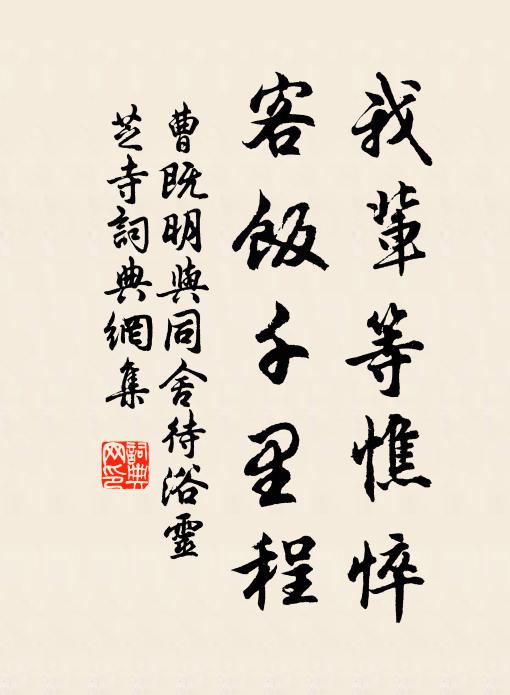 我輩等憔悴
客飯千里程
曹既明與同舍待浴靈
芝寺詞典網集
詞典
网印